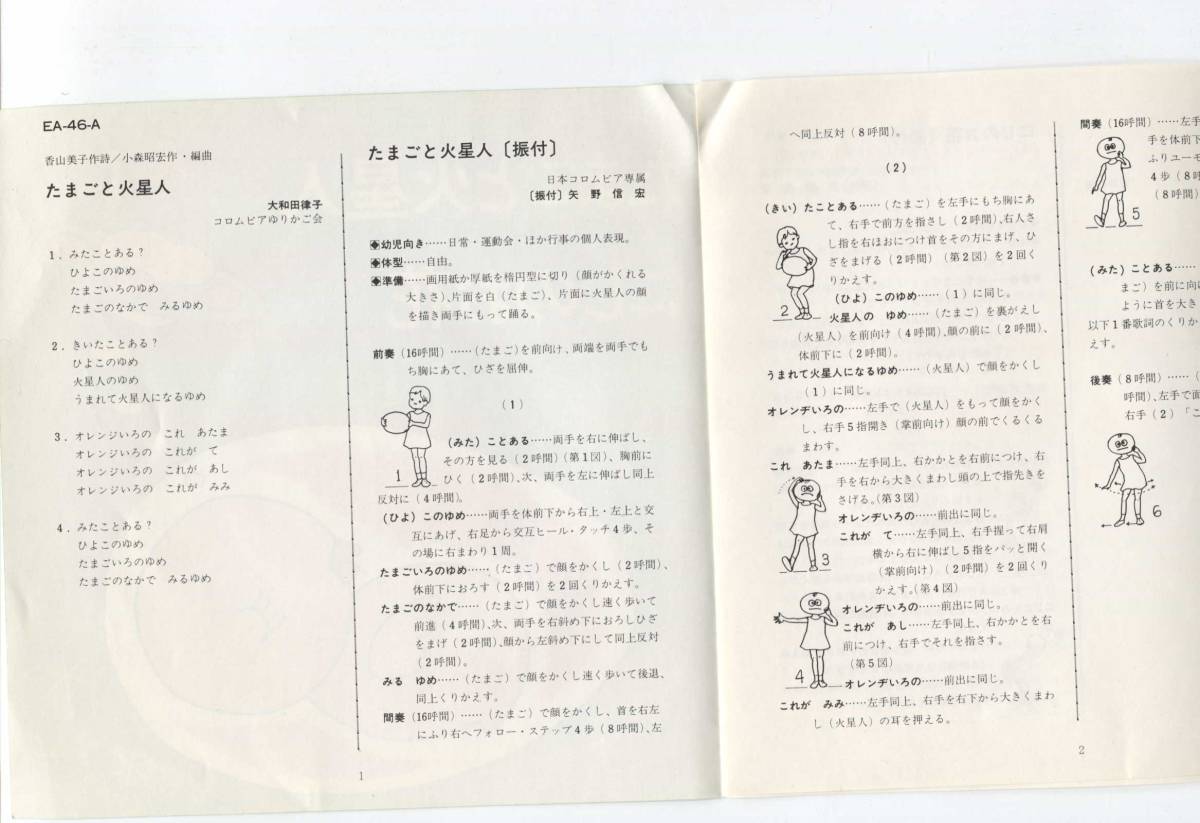 EA-46-A
香山美子作詩／小森昭宏作・編曲
たまごと火星人
大和田律子
コロムビアゆりかご会
1．みたことある？
ひよこのゆめ
たまごいろのゆめ
たまごのなかで　みるゆめ
2．きいたことある？
ひよこのゆめ
火星人のゆめ
うまれて火星人になるゆめ
3．オレンジいろの　これ　あたま
オレンジいろの　これが　て
オレンジいろの　これが　あし
オレンジいろの　これが　みみ
4．みたことある？
ひよこのゆめ
たまごいろのゆめ
たまごのなかで　みるゆめ
たまごと火星人〔振付〕
日本コロムビア専属
〔振付〕矢野信宏
◆幼児向き……日常・運動会・ほか行事の個人表現。
◆体型……自由。
◆準備……画用紙か厚紙を楕円型に切り（顔がかくれる
大きさ）、片面を白（たまご）、片面に火星人の顔
を描き両手にもって踊る。
前奏（16呼間）……（たまご）を前向け、両端を両手でも
ち胸にあて、ひざを屈伸。
（1）
（みた）ことある……両手を右に伸ばし、
その方を見る（2呼間）（第1図）、胸前に
ひく（2呼間）、次、両手を左に伸ばし同上
反対に（4呼間）。
1
（ひよ）このゆめ……両手を体前下から右上・左上と交
互にあげ、右足から交互ヒール・タッチ4歩、そ
の場に右まわり1周。
たまごいろのゆめ……（たまご）で顔をかくし（2呼間）、
体前下におろす（2呼間）を2回くりかえす。
たまごのなかで……（たまご）で顔をかくし速く歩いて
前進（4呼間）、次、両手を右斜め下におろしひざ
をまげ（2呼間）、顔から左斜め下にして同上反対
（2呼間）。
みる　ゆめ……（たまご）で顔をかくし速く歩いて後退、
同上くりかえす。
間奏（16呼間）……（たまご）で顔をかくし、首を右左
にふり右へフォロー・ステップ4歩（8呼間）、左
1
へ同上反対（8呼間）。
（2）
（きい）たことある……（たまご）を左手にもち胸にあ
て、右手で前方を指さし（2呼間）、右人さ
し指を右ほおにつけ首をその方にまげ、ひ
ざをまげる（2呼間）（第2図）を2回く
りかえす。
2
（ひよ）このゆめ……（1）に同じ。
火星人の　ゆめ……（たまご）を裏がえし
（火星人）を前向け（4呼間）、顔の前に（2呼間）、
体前下に（2呼間）。
うまれて火星人になるゆめ……（火星人）で顔をかくし
（1）に同じ。
オレンヂいろの……左手で（火星人）をもって顔をかく
し、右手5指開き（掌前向け）顔の前でくるくる
まわす。
これ　あたま……左手同上、右かかとを右前につけ、右
手を右から大きくまわし頭の上で指先きを
さげる。（第3図）
3
オレンヂいろの……前出に同じ。
これが　て……左手同上、右手握って右肩
横から右に伸ばし5指をパッと開く
（掌前向け）（2呼間）を2回くり
かえす。（第4図）
オレンヂいろの……前出に同じ。
これが　あし……左手同上、右かかとを右
前につけ、右手でそれを指さす。
（第5図）
4
オレンヂいろの……前出に同じ。
これが　みみ……左手同上、右手を右下から大きくまわ
し（火星人）の耳を押える。
間奏（16呼間）……左手
手を体前下
ふりユーモ
4歩（8呼
（8呼間）
5
（みた）ことある……
まご）を前に向け
ように首を大き
以下1番歌詞のくりか
えす。
後奏（8呼間）……（
呼間）、左手で面
右手（2）「こ
6
2